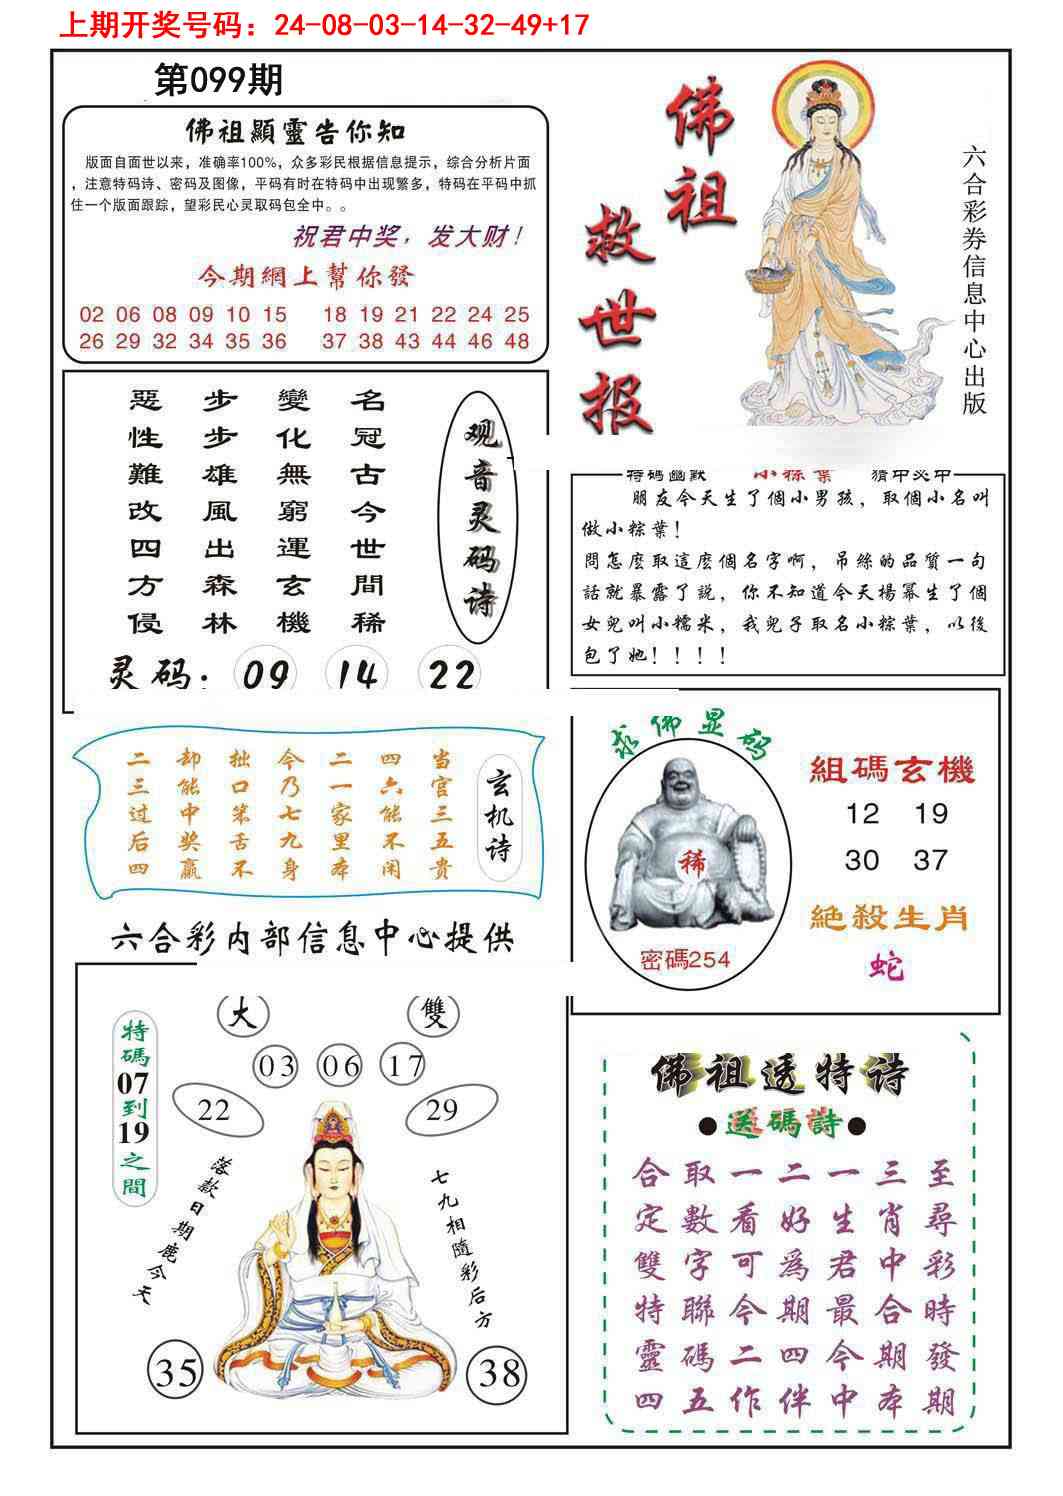 上期开奖号码：24-08-03-14-32-49+17
第099期
佛祖顯靈告你知
版面自面世以来，准确率100%，众多彩民根据信息提示，综合分析片面
，注意特码诗、密码及图像，平码有时在特码中出现繁多，特码在平码中抓
住一个版面跟踪，望彩民心灵取码包全中。。
祝君中奖，发大财！
今期網上幫你發
02 06 08 09 10 15 18 19 21 22 24 25
26 29 32 34 35 36 37 38 43 44 46 48
佛祖
救世报
六合彩券信息中心出版
观音灵码诗
名冠古今世間稀
變化無窮運玄機
步步雄風出森林
惡性難改四方侵
灵码：09 14 22
特碼幽默 小粽葉 猜中必中
朋友今天生了個小男孩，取個小名叫
做小粽葉！
問怎麽取這麽個名字啊，吊絲的品質一句
話就暴露了説，你不知道今天楊冪生了個
女兒叫小糯米，我兒子取名小粽葉，以後
包了她！！！！
玄机诗
当官三五贵
四六能不闲
二一家里本
今乃七九身
拙口笨舌不
却能中奖赢
二三过后四
求佛显码
稀
密碼254
組碼玄機
12 19
30 37
絕殺生肖
蛇
六合彩内部信息中心提供
特碼07到19之間
大 雙
03 06 17
22 29
落款日期鹿今天
七九相隨彩后方
35 38
佛祖透特诗
●送碼詩●
至尋彩時發期
三肖中合期本
一生君最今中
二好為期四伴
一看可今二作
取數字聯碼五
合定雙特靈四